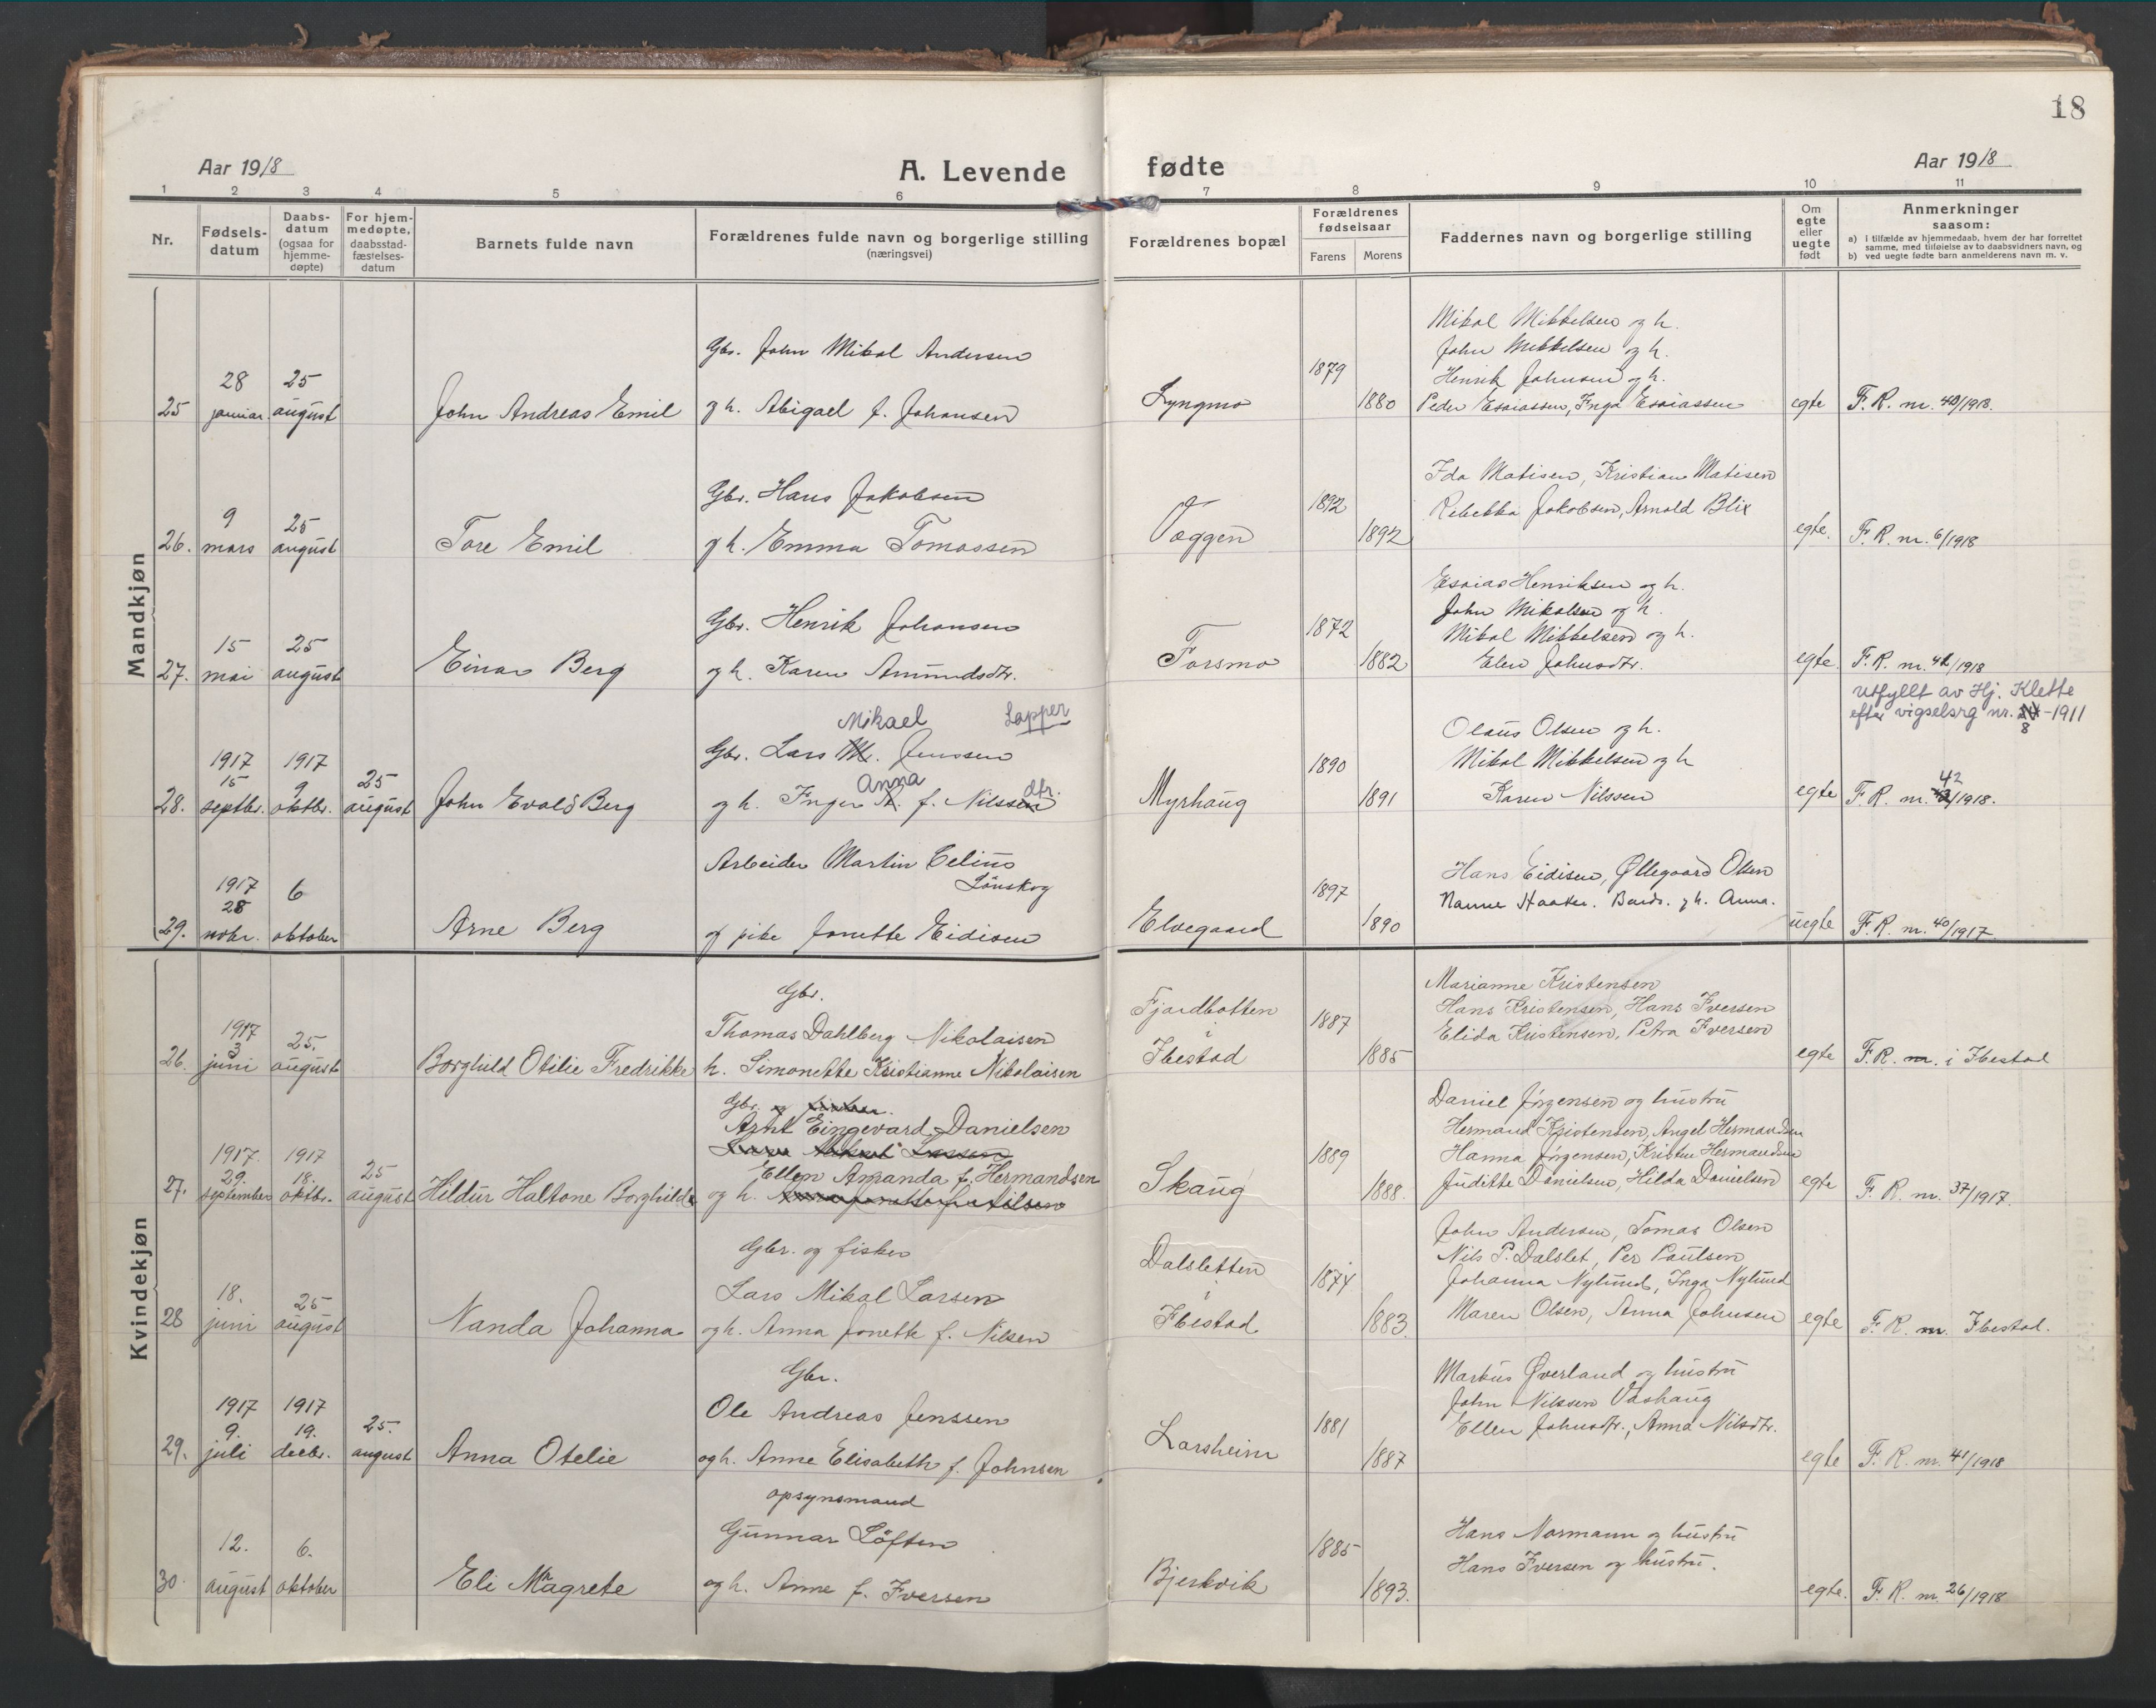 18
Aar 1918
A. Levende fødte
Aar 1918
1 2 3 4 5 6 7 8 9 10 11
Nr.
Fødsels-
datum
Daabs-
datum
(ogsaa for
hjemme-
døpte)
For hjem-
medøpte,
daabsstad-
fæstelses-
datum
Barnets fulde navn
Forældrenes fulde navn og borgerlige stilling
(næringsvei)
Forældrenes bopæl
Forældrenes
fødselsaar
Farens Morens
Faddernes navn og borgerlige stilling
Om
egte
eller
uegte
født
Anmerkninger
saasom:
a) i tilfælde av hjemmedaab, hvem der har forrettet
samme, med tilføielse av to daabsvidners navn, og
b) ved uegte fødte barn anmelderens navn m. v.
Mandkjøn
25
28
januar
25
august
John Andreas Emil
Gbr. John Mikal Andersen
og h. Abigael f. Johansen
Lyngmo
1879
1880
Mikal Mikkelsen og h.
John Mikkelsen og h.
Henrik Johnsen og h.
Peder Esaiassen, Inga Esaiassen
egte
F. R. nr. 40/1918.
26.
9
mars
25
august
Tore Emil
Gbr. Hans Jakobsen
og h. Emma Tomassen
Væggen
1892
1892
Ida Matisen, Kristian Matisen
Rebekka Jakobsen, Arnold Blix
egte.
F. R. nr. 6/1918
27.
15
mai
25
august
Einar Berg
Gbr. Henrik Johansen
og h. Karen Amundsdtr.
Forsmo
1872
1882
Esaias Henriksen og h.
John Mikalsen og h.
Mikal Mikkelsen og h.
Elen Johnsdtr.
egte.
F. R. nr. 41/1918
utfyllt av Hj. Klette
efter vigselsrg nr. 8-1911
28.
1917
15
septbr.
1917
9
oktbr.
25
august
John Evald Berg
Mikael Lapper
Gbr. Lars M. Jenssen
Anna dtr.
og h. Inger A. f. Nilssen
Myrhaug
1890
1891
Olaus Olsen og h.
Mikal Mikkelsen og h
Karen Nilssen
egte
42
F. R. nr. /1918.
29.
1917
28
nobr.
6
oktober
Arne Berg
Arbeider Martin Celius
Lönskog
og pike Jonette Eidisen
Elvegaard
1897
1890
Hans Eidisen, Øllegaard Olsen
Nanne Haater. Bards. og h. Anna.
uegte
F. R. nr. 40/1917.
Kvindekjøn
26.
1917
3
juni
25.
august
Borghild Otilie Fredrikke
Gbr.
Thomas Dahlberg Nikolaisen
h. Simonette Kristianne Nikolaisen
Fjordbotten
i
Ibestad
1887
1885
Marianne Kristensen
Hans Kristensen, Hans Iversen
Elida Kristensen, Petra Iversen
egte
F. R. nr. i Ibestad
27.
1917.
29.
september
1917
18.
oktbr.
25
august
Hildur Haltone Borghilde
Gbr. og fisker.
Arnt Eingevard Danielsen
Lars Mikal Larsen
Ellen Amanda f. Hermandsen
og h. Anna Jonette f. Nilsen
Skaug
1889
1888.
Daniel Jørgensen og hustru
Hermand Kristensen, Angel Hermandsen
Hanna Jørgensen, Kristine Hermandsen
Juditte Danielsen, Hilda Danielsen
egte
F. R. nr. 37/1917.
28
18.
juni
25
august
Nanda Johanna
Gbr. og fisker
Lars Mikal Larsen
og h. Anna Jonette f. Nilsen
Dalsletten
i
Ibestad
1874
1883.
John Andersen, Tomas Olsen
Nils P. Dalslet, Per Paulsen
Johanna Nylund, Inga Nylund
Maren Olsen, Anna Johnsen
egte
F. R. nr. Ibestad.
29.
1917
9.
juli
1917
19.
decbr.
25.
august
Anna Otelie
Gbr.
Ole Andreas Jenssen
og h. Anne Elisabeth f. Johnsen
Larsheim
1881
1887
Markus Øverland og hustru
John Nilssen Vashaug
Ellen Johnsdtr., Anna Nilsdtr.
egte
F. R. nr. 41/1918
30.
12.
august
6.
oktober
Eli Magrete
opsynsmand
Gunnar Löften
og h. Anne f. Iversen
Bjerkvik
1885
1893.
Hans Normann og hustru
Hans Iversen og hustru.
egte.
F. R. nr. 26/1918